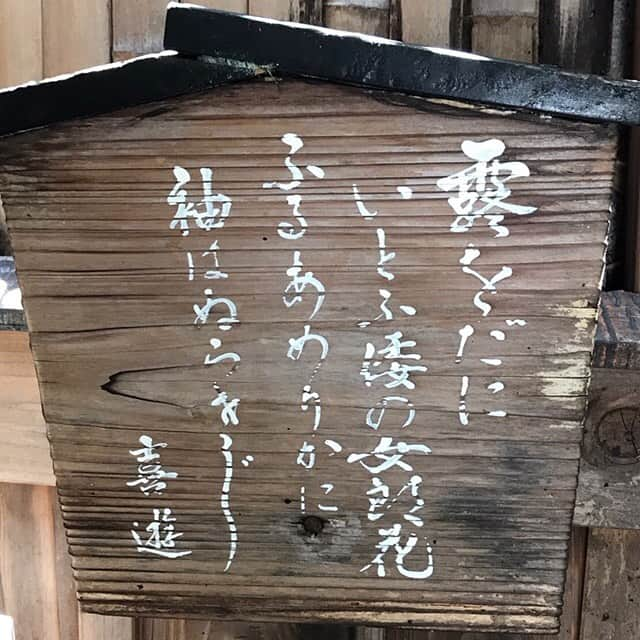 露をだに
いとふ倭の女郎花
ふるあめりかに
袖はぬらさじ
喜遊